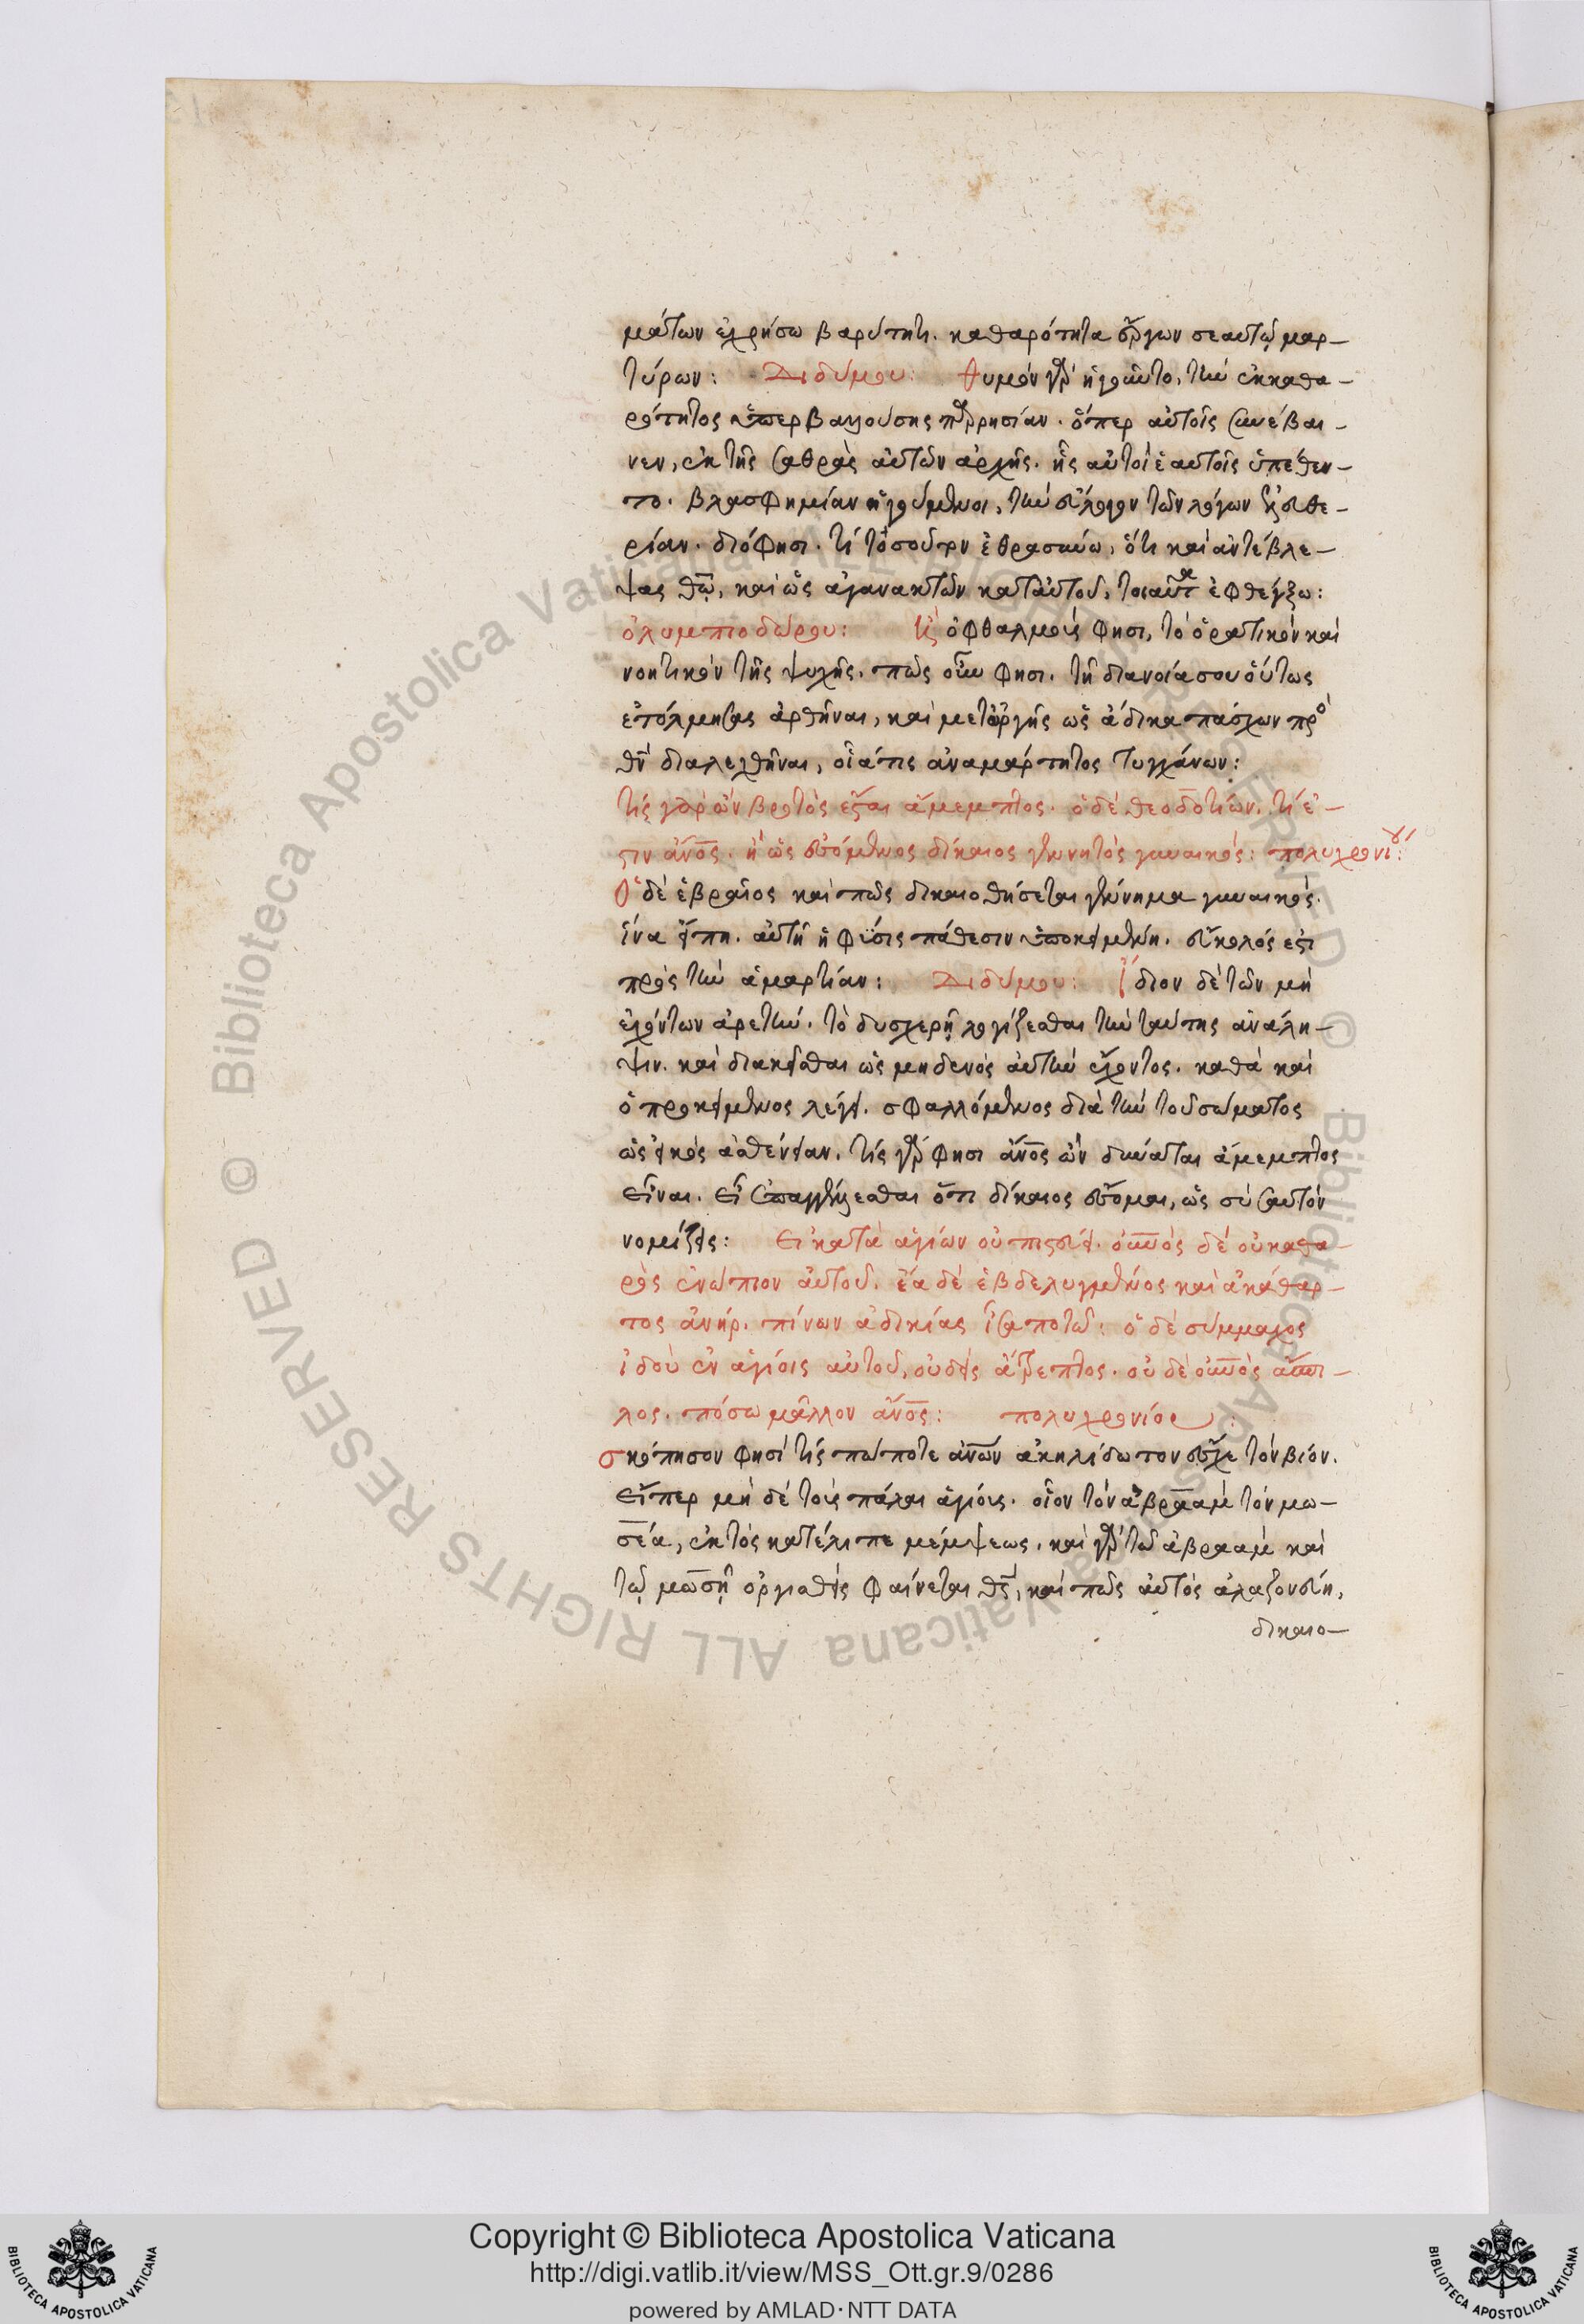 μάτων ἐχρήσω βαρύτητι. καθαρότητα ἔργων σεαυτῷ μαρ-
τύρων: Διδύμου: θυμὸν γὰρ ἡγοῦντο, τὴν ἐκ καθα-
ρότητος ὑπερβαλλούσης παρρησίαν. ὅπερ αὐτοῖς συνέβαι-
νεν, ἐκ τῆς σαθρᾶς αὐτῶν ἀρχῆς. ἧς αὐτοὶ ἑαυτοῖς ὑπέθεν-
το. βλασφημίαν ἡγούμενοι, τὴν εὔλογον τῶν λόγων ἐλευθε-
ρίαν. διό φησι. τί τοσοῦτον ἐθρασύνω, ὅτι καὶ ἀντέβλε-
ψας θῶ, καὶ ὡς ἀγανακτῶν κατ' αὐτοῦ, τοιαῦτα ἐφθέγξω:
ὀλυμπιοδώρου: ὀφθαλμοὺς φησι, τὸ ὁρατικὸν καὶ
νοητικὸν τῆς ψυχῆς. πῶς οὖν φησι. τῇ διανοίᾳ σου οὕτως
ἐτόλμησας ἀρθῆναι, καὶ μετ' ὀργῆς ὡς ἄδικα πάσχων πρὸ
θν διαλεχθῆναι, οἷά τις ἀναμάρτητος τυγχάνων:
τίς γὰρ ὢν βροτὸς ἔσται ἄμεμπτος. ὁ δὲ θεοδοτίων. τί ἐ-
στιν ἄνος. ἢ ὡς ἐσόμενος δίκαιος γεννητὸς γυναικός: πολυχρονίου:
Ὁ δὲ ἑβραῖος καὶ πῶς δικαιοθήσεται γέννημα γυναικός.
ἵνα εἴπῃ. αὐτὴ ἡ φύσις πάθεσιν ὑποκειμένη. εὔκολός ἐστι
πρὸς τὴν ἁμαρτίαν: Διδύμου: ἴδιον δὲ τῶν μὴ
ἐχόντων ἀρετήν. τὸ δυσχερῆ λογίζεσθαι τὴν ταύτης ἀνάλη-
ψιν. καὶ διακεῖσθαι ὡς μηδενὸς αὐτὴν ἔχοντος. καθὰ καὶ
ὁ προκείμενος λέγει. σφαλλόμενος διὰ τὴν τοῦ σώματος
ὡς εἰκὸς ἀσθένειαν. τίς γάρ φησι ἄνος ὢν δύναται ἄμεμπτος
εἶναι. ἢ ἐπαγγέλλεσθαι ὅτι δίκαιος ἔσομαι, ὡς σὺ σαυτὸν
νομίζεις: Εἰ κατὰ ἁγίων οὐ πιστεύει. οὐνὸς δὲ οὐ καθα-
ρὸς ἐνώπιον αὐτοῦ. ἔα δὲ ἐβδελυγμένος καὶ ἀκάθαρ-
τος ἀνήρ. πίνων ἀδικίας ἴσα ποτῷ: ὁ δὲ σύμμαχος
ἰδοὺ ἐν ἁγίοις αὐτοῦ, οὐδεὶς ἄτρεπτος. οὐδὲ οὐνὸς ἄσπι-
λος. πόσω μᾶλλον ἄνος: πολυχρονίου:
σκόπησον φησὶ τίς πώποτε ἀνων ἀκηλίδωτον ἔσχε τὸν βίον.
εἴπερ μὴ δὲ τοὺς πάλαι ἁγίοις. οἷον τὸν ἀβραὰμ τὸν μω-
σέα, ἐκτὸς κατέλιπε μέμψεως. καὶ γὰρ τῷ ἀβραὰμ καὶ
τῷ μωσῇ ὀργισθεὶς φαίνεται θς, καὶ πῶς αὐτὸς ἀλαζονεύῃ,
δικαιο-
Copyright © Biblioteca Apostolica Vaticana
http://digi.vatlib.it/view/MSS_Ott.gr.9/0286
powered by AMLAD·NTT DATA